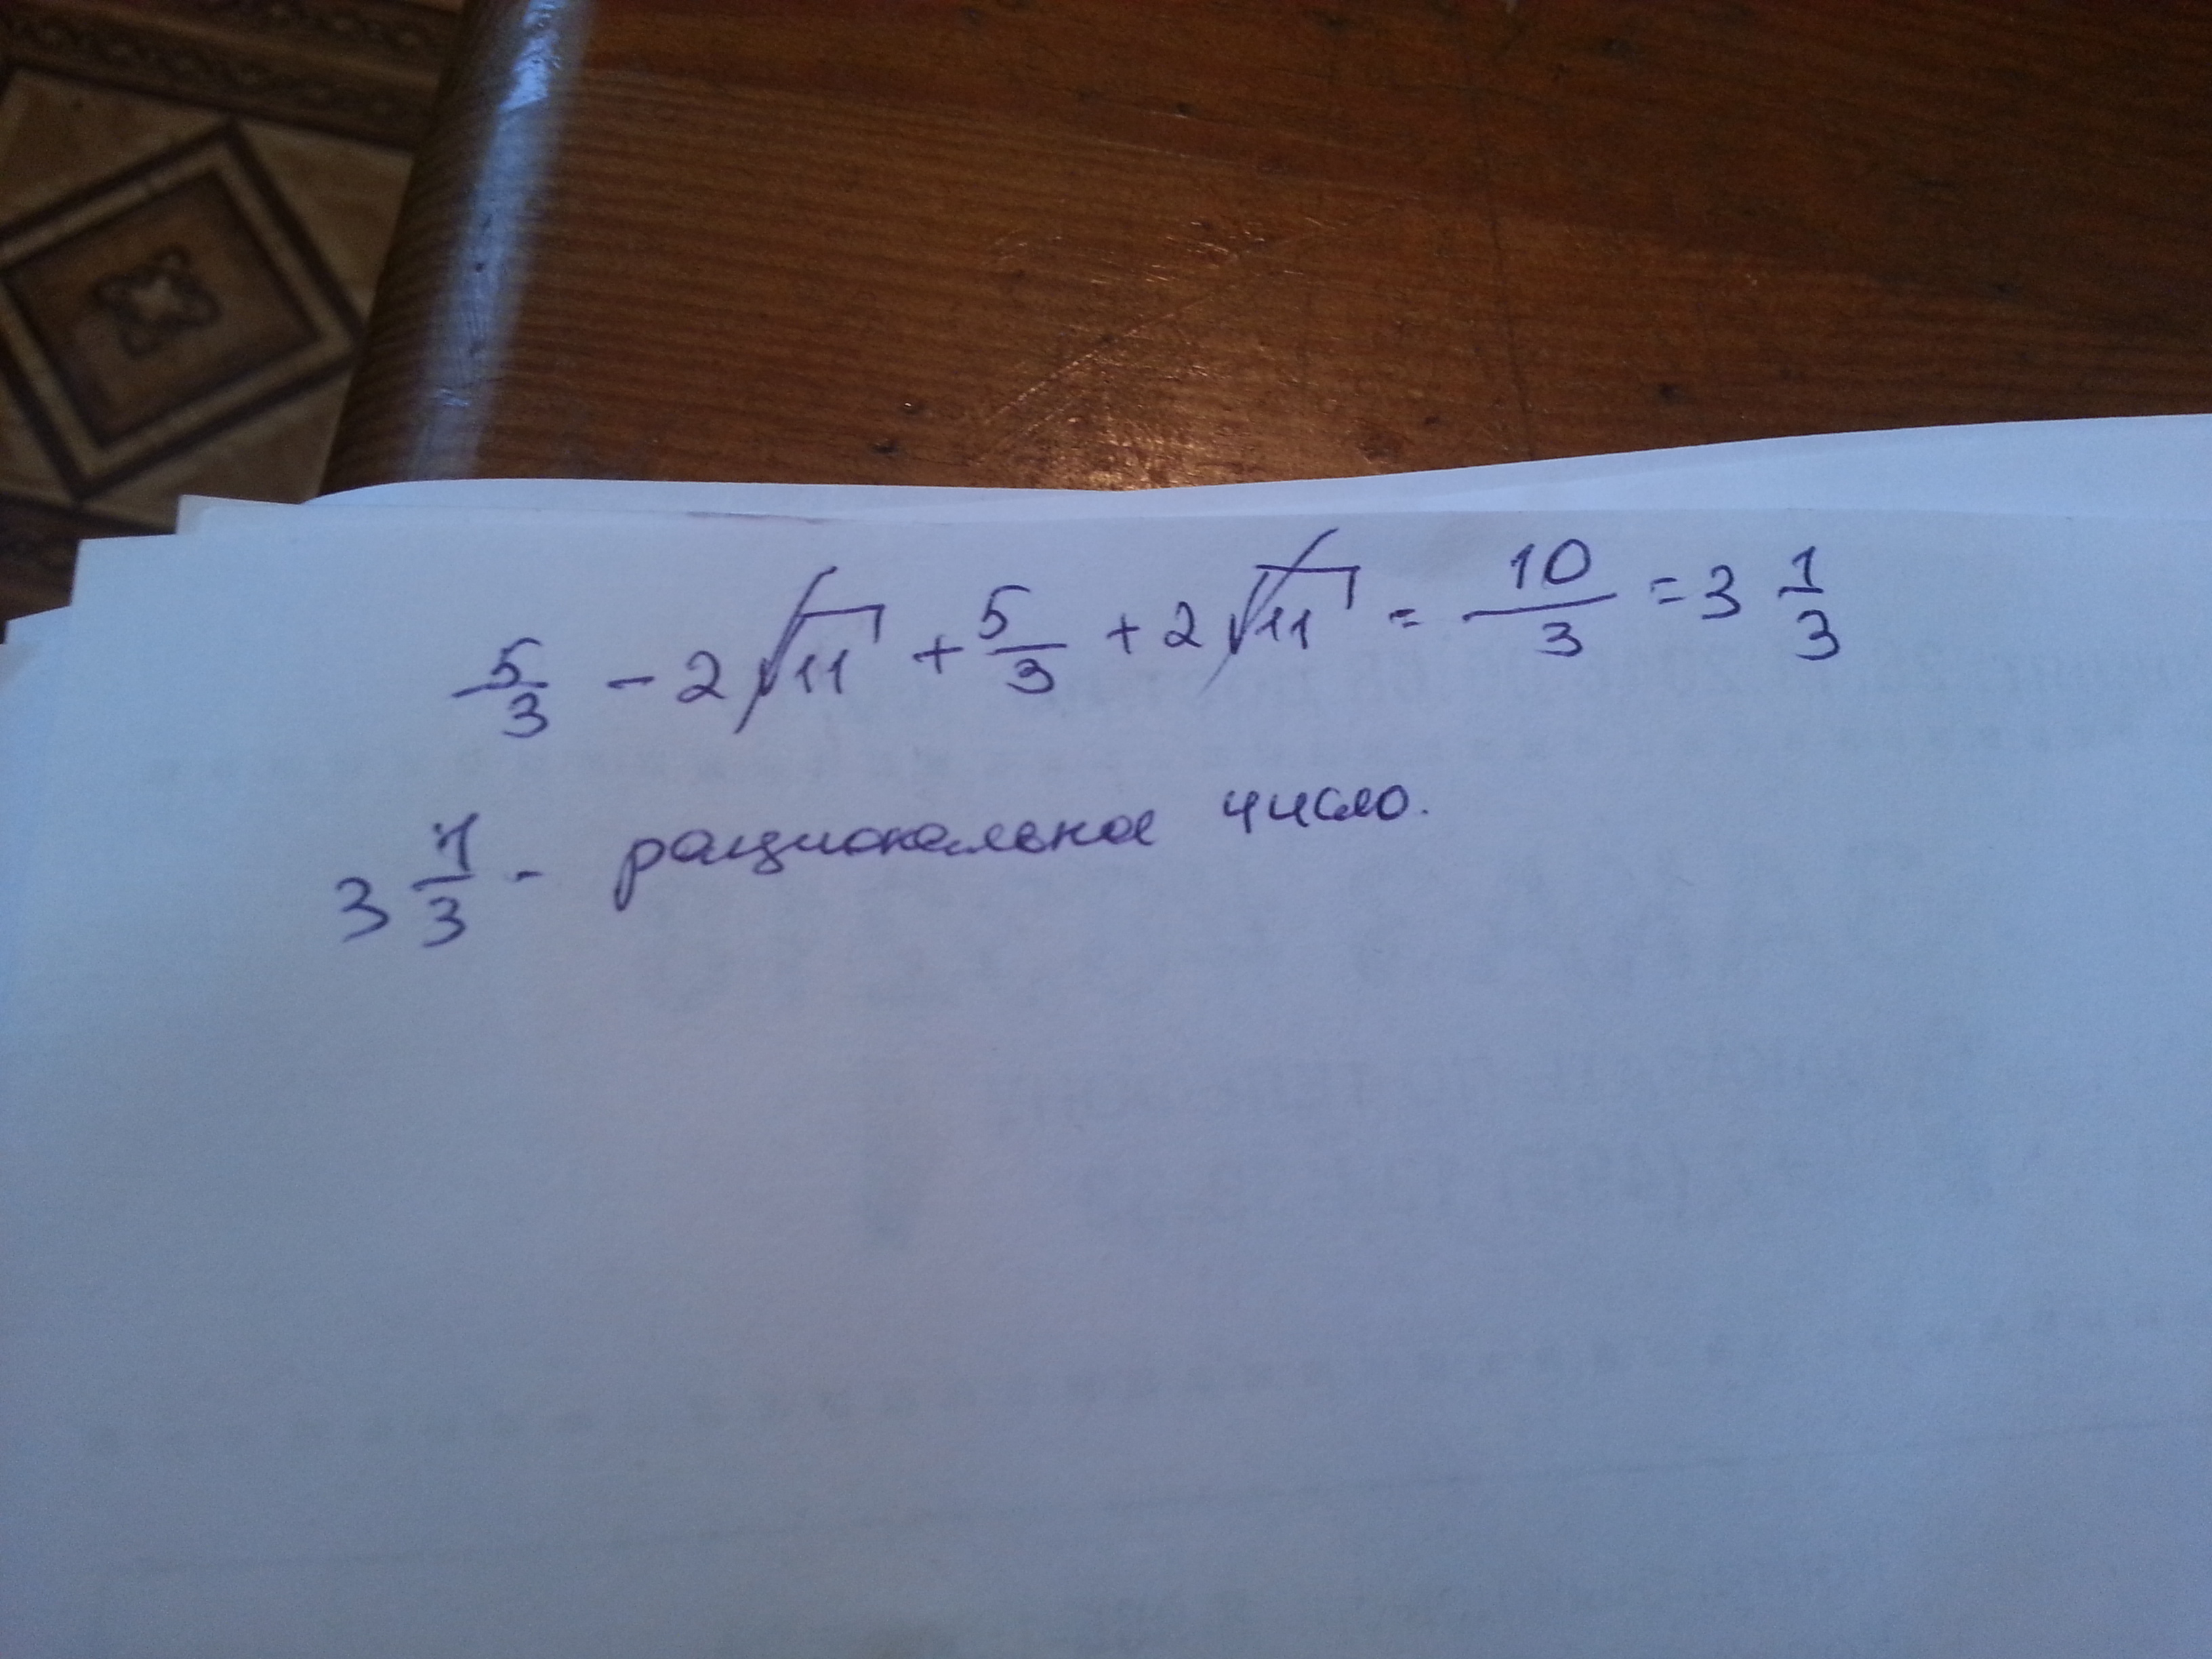 5/3 - 2√11 + 5/3 + 2√11 = 10/3 = 3 1/3
3 1/3 - рациональное число.